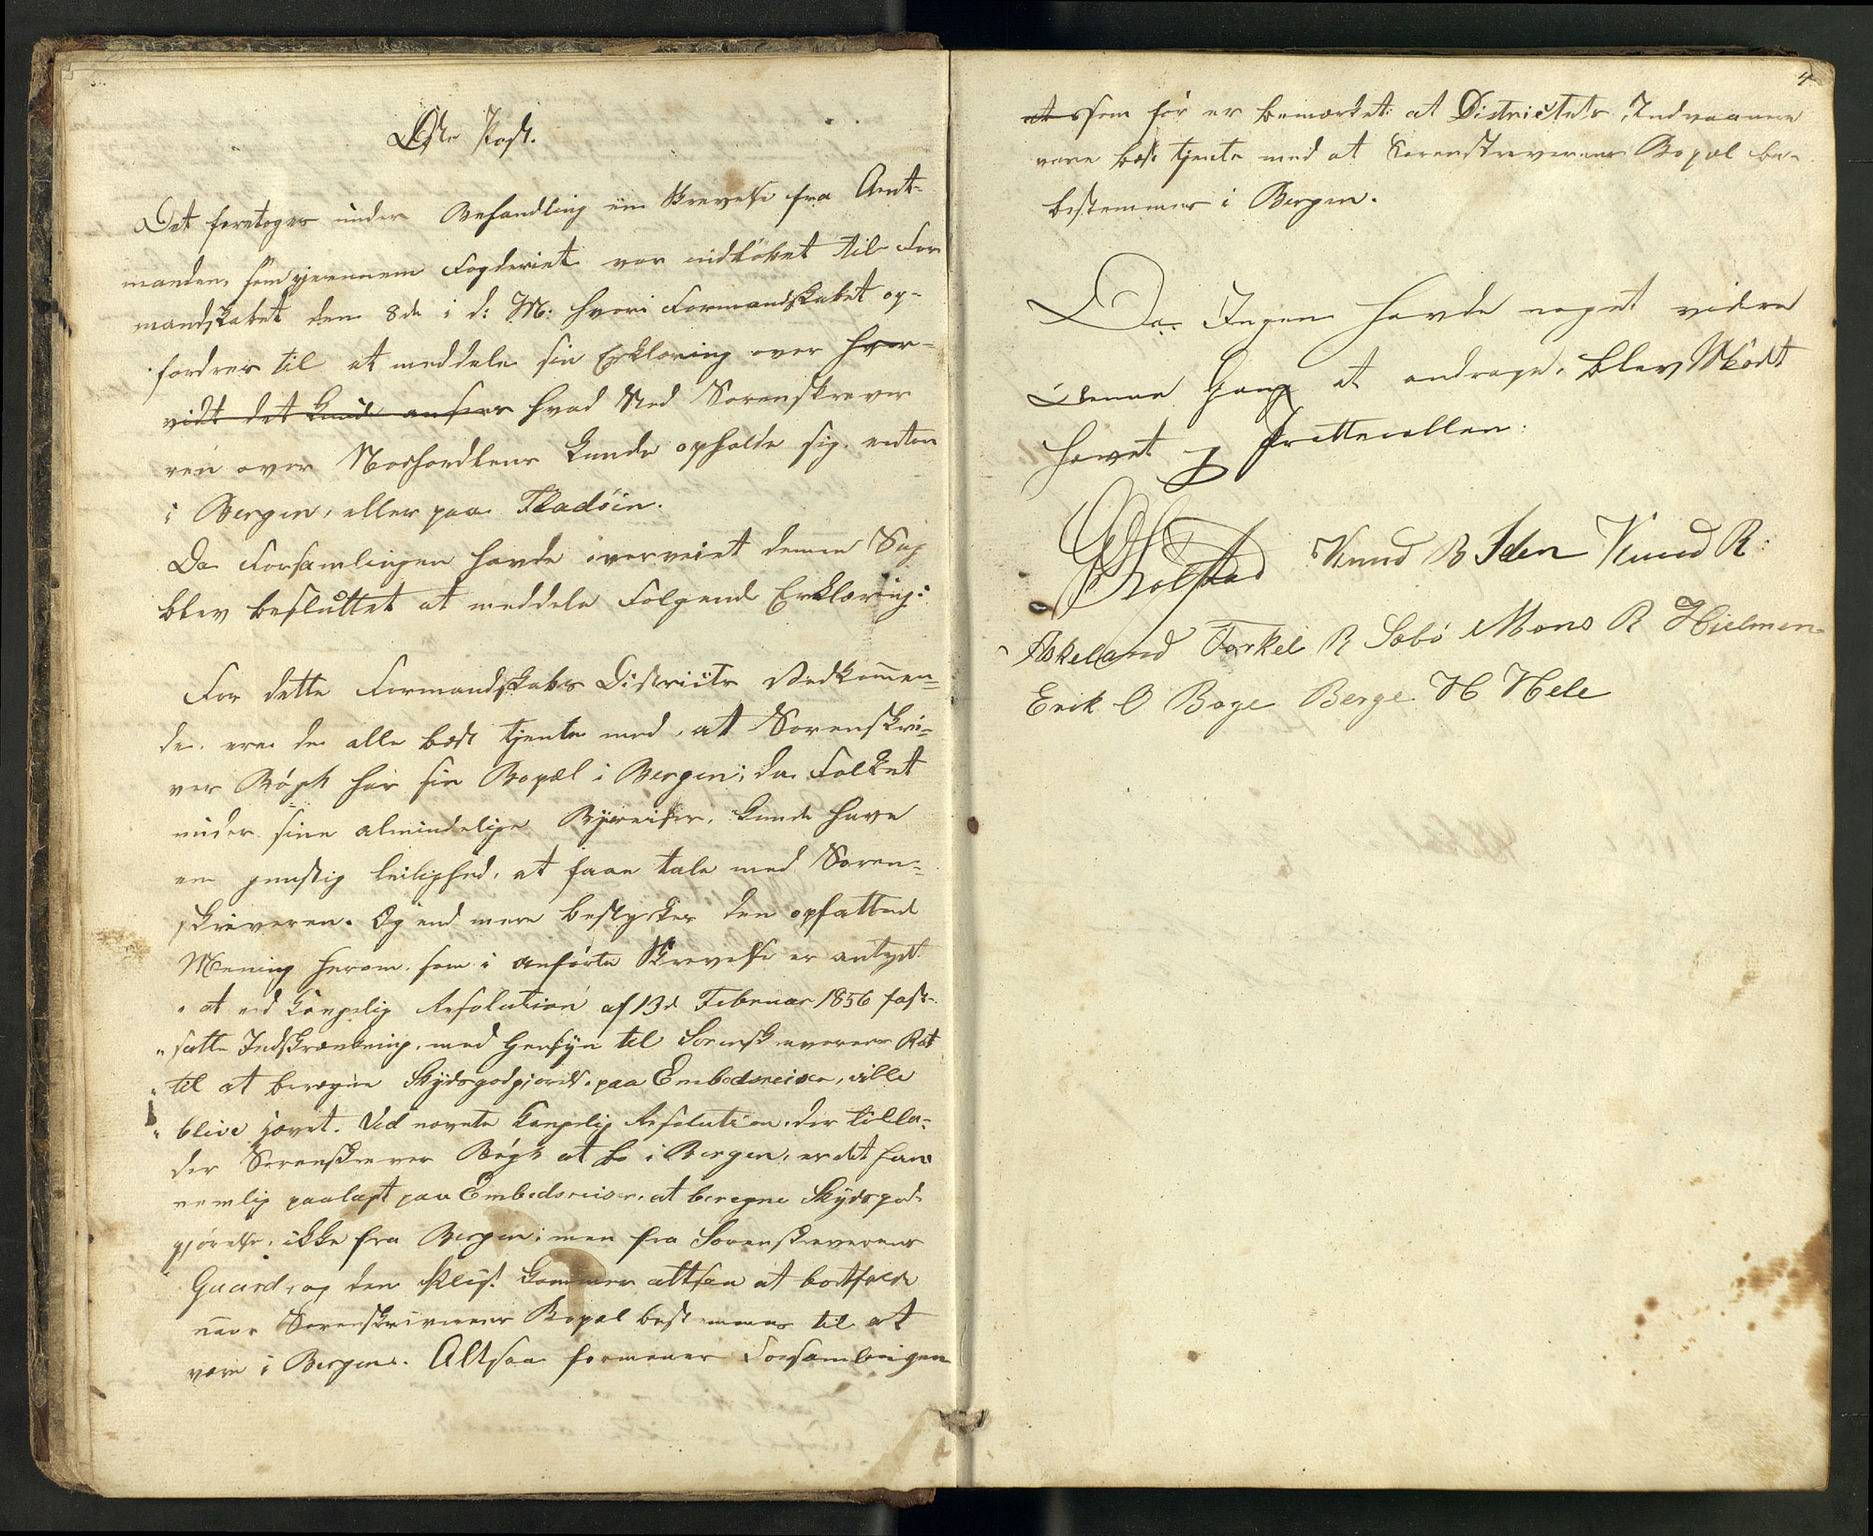 Post.
Det foretoges under Behandling en Skrevelse fra Amt-
manden, som gjennem Fogderiet var indløbet til For
mandskabet den 8de i d: M: hvori Formandskabet op-
fordres til at meddele sin Erklæring over hvor-
vidt det kunde ansees hvad Sted Sorenskrever
ren over Nordhordlens kunde opholde sig, enten
i Bergen, eller paa Fladöin.
Da Forsamlingen havde overveiet denne Sag
blev besluttet at meddele Følgende Erklæring:
For dette Formandskabs Districts Vedkommen=
de, ere de alle best tjente med, at Sorenskri=
ver Bøgh har sin Bopæl i Bergen; da Folket
under sine almindelige Byreiser, kunde have
en gunstig Leilighed, at faae tale med Soren=
skriveren. Og end mere bestyrker den opfattede
Mening herom, som i anførte Skrevelse er antydt
"at ved Kongelig Resolution af 13de Februar 1856 fast-
"satte Indskrænkning, med Hensyn til Sorenskreverens Ret
"til at beregne Skydsgodtgjørelse paa Embedsreiser, ville
"blive hævet. Ved nævnte Kongelig Resolution, der tilla-
der Sorenskrever Bøgh at bo i Bergen, er det ham
nemlig paalagt paa Embedsreiser, at beregne Skydsgod-
gjørelse, ikke fra Bergen; men fra Sorenskreverens
Gaard, og den kommer altsaa at bortfalde
naar Sorenskriverens Bopæl bestemmes til at
være i Bergen. Altsaa formener Forsamlingen
4
at som før er bemærket: at Districtets Indvaanere
være best tjente med at Sorenskreverens Bopæl be-
bestemmes i Bergen.
Da Ingen havde noget videre
denne Gang at andrage, blev Mødet
hævet og Prottecollen
Kolstad Knud B Iden Knud R:
Askeland Torkel R Sæbö Mons R Hjelmen
Erik O Boge Berge H Hele